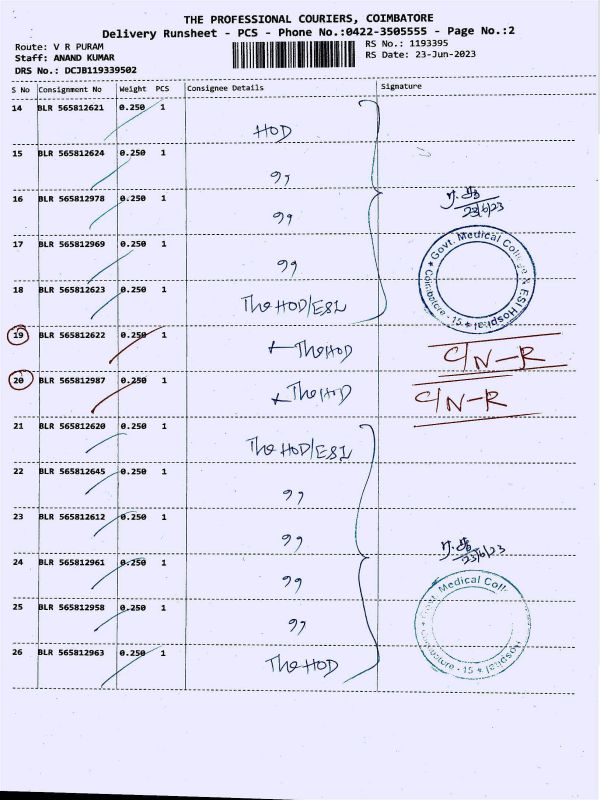 THE PROFESSIONAL COURIERS, COIMBATORE
Delivery Runsheet - PCS - Phone No.:0422-3505555 - Page No.:2
Route: V R PURAM
RS No.: 1193395
Staff: ANAND KUMAR
RS Date: 23-Jun-2023
DRS No.: DCJB119339502
S No Consignment No Weight PCS Consignee Details Signature
14 BLR 565812621 0.250 1 HOD
15 BLR 565812624 0.250 1 ,,
16 BLR 565812978 0.250 1 ,,
23/6/23
17 BLR 565812969 0.250 1 ,,
18 BLR 565812623 0.250 1 The HOD/ESI
Govt. Medical College & ESI Hospital
Coimbatore - 15
19 BLR 565812622 0.250 1 The HOD C/N-R
20 BLR 565812987 0.250 1 The HOD C/N-R
21 BLR 565812620 0.250 1 The HOD/ESI
22 BLR 565812645 0.250 1 ,,
23 BLR 565812612 0.250 1 ,,
23/6/23
24 BLR 565812961 0.250 1 ,,
25 BLR 565812958 0.250 1 ,,
26 BLR 565812963 0.250 1 The HOD
Govt. Medical Coll
Hospital
Coimbatore - 15